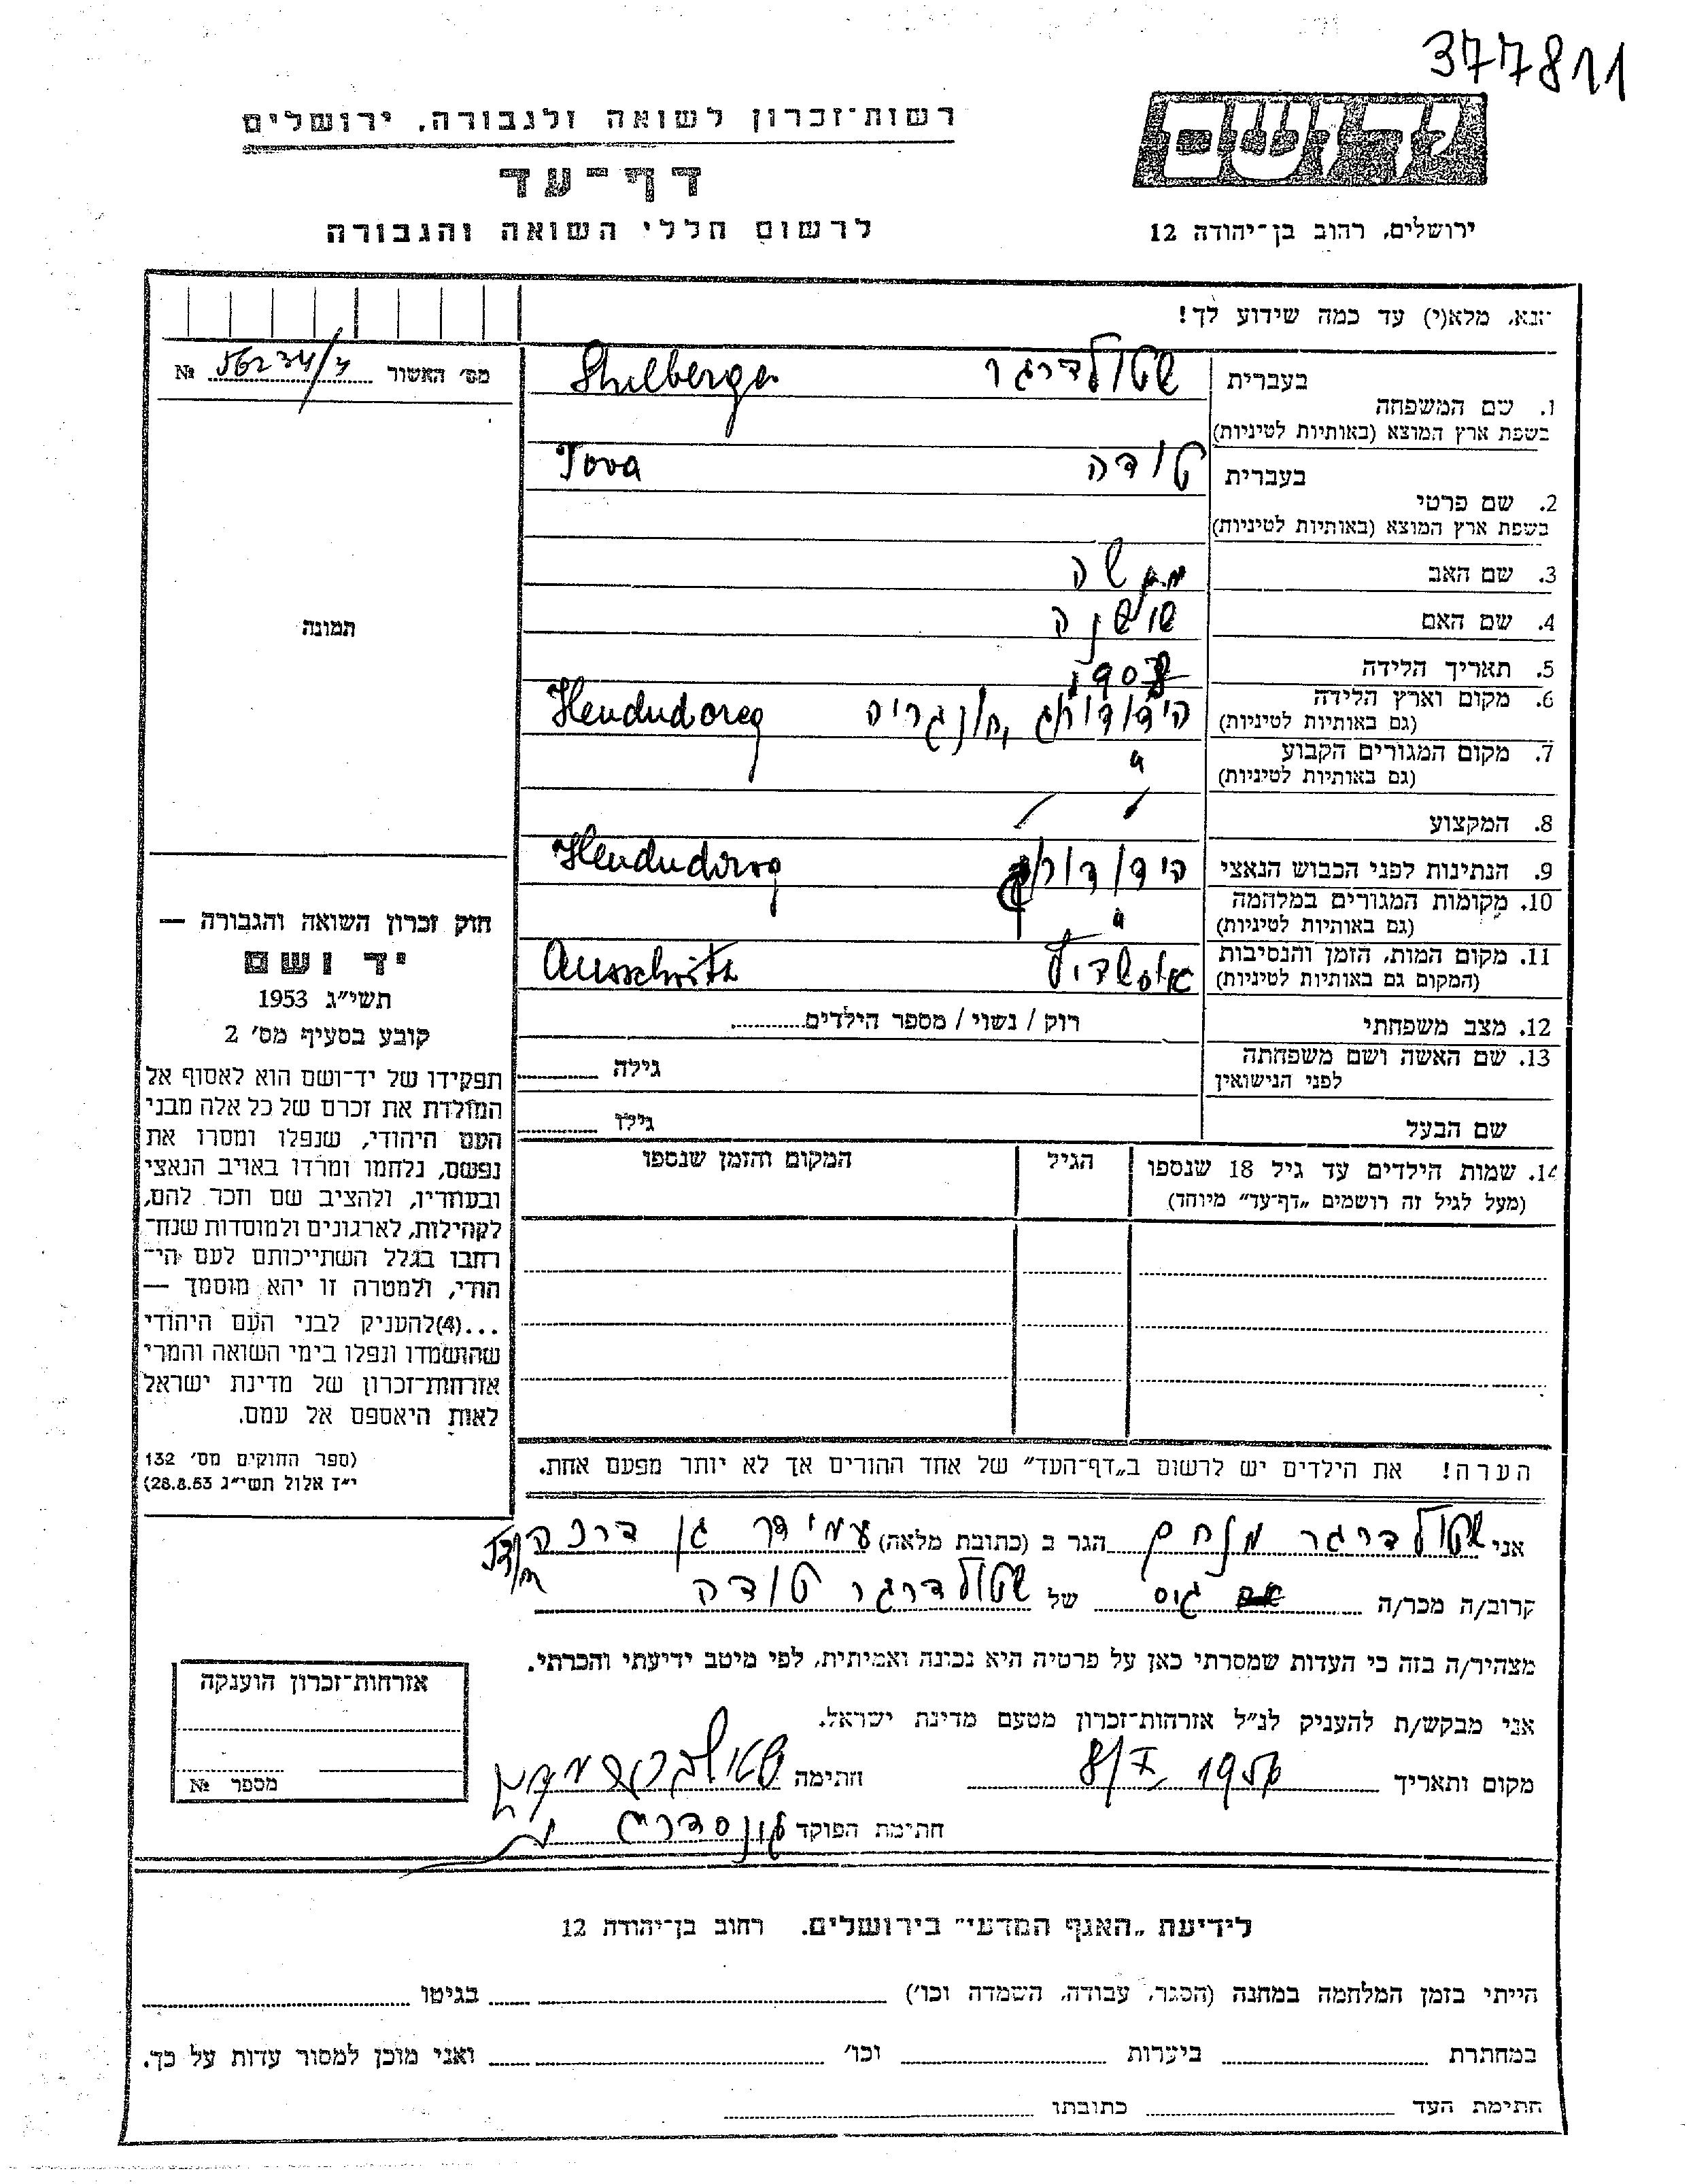 377811
רשות־זכרון לשואה ולגבורה, ירושלים
דף־עד
לרשום חללי השואה והגבורה
ידושם
ירושלים, רחוב בן־יהודה 12
אנא, מלא(י) עד כמה שידוע לך!
מס' האשור № 56234/3
1. שם המשפחה בעברית שטולברגר Shtulberger
בשפת ארץ המוצא (באותיות לטיניות)
2. שם פרטי בעברית טובה Tova
בשפת ארץ המוצא (באותיות לטיניות)
3. שם האב משה
4. שם האם שושנה
5. תאריך הלידה
6. מקום וארץ הלידה הונגריה
(גם באותיות לטיניות)
7. מקום המגורים הקבוע "
(גם באותיות לטיניות)
8. המקצוע
9. הנתינות לפני הכבוש הנאצי
10. מקומות המגורים במלחמה "
(גם באותיות לטיניות)
11. מקום המות, הזמן והנסיבות
(המקום גם באותיות לטיניות)
12. מצב משפחתי רוק / נשוי / מספר הילדים
13. שם האשה ושם משפחתה גילה
לפני הנישואין
שם הבעל גילו
14. שמות הילדים עד גיל 18 שנספו הגיל המקום והזמן שנספו
(מעל לגיל זה רושמים „דף־עד" מיוחד)
תמונה
חוק זכרון השואה והגבורה —
יד ושם
תשי"ג 1953
קובע בסעיף מס' 2
תפקידו של יד־ושם הוא לאסוף אל
המולדת את זכרם של כל אלה מבני
העם היהודי, שנפלו ומסרו את
נפשם, נלחמו ומרדו באויב הנאצי
ובעוזריו, ולהציב שם וזכר להם,
לקהילות, לארגונים ולמוסדות שנח־
רבו בגלל השתייכותם לעם הי־
הודי, ולמטרה זו יהא מוסמך —
...(4)להעניק לבני העם היהודי
שהושמדו ונפלו בימי השואה והמרי
אזרחות־זכרון של מדינת ישראל
לאות היאספם אל עמם.
(ספר החוקים מס' 132
י"ז אלול תשי"ג 28.8.53)
הערה! את הילדים יש לרשום ב„דף־העד" של אחד ההורים אך לא יותר מפעם אחת.
אני שטולברגר מנחם הגר ב (כתובת מלאה) עמידר גן
קרוב/ה מכר/ה גיס של שטולברגר טובה
מצהיר/ה בזה כי העדות שמסרתי כאן על פרטיה היא נכונה ואמיתית, לפי מיטב ידיעתי והכרתי.
אני מבקש/ת להעניק לנ"ל אזרחות־זכרון מטעם מדינת ישראל.
מקום ותאריך 8/X 1956 חתימה
חתימת הפוקד
אזרחות־זכרון הוענקה
מספר №
לידיעת „האגף המדעי" בירושלים. רחוב בן־יהודה 12
הייתי בזמן המלחמה במחנה (הסגר, עבודה, השמדה וכו') בגיטו
במחתרת ביערות וכו' ואני מוכן למסור עדות על כך.
חתימת העד כתובתו